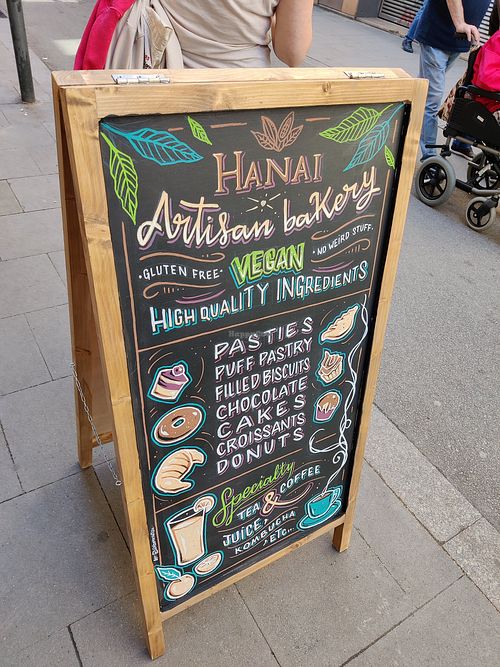 HANAI
Artisan baKery
·GLUTEN FREE·
VEGAN
·NO WEIRD STUFF.
HIGH QUALITY INGREDIENTS
PASTIES
PUFF PASTRY
FILLED BISCUITS
CHOCOLATE
CAKES
CROISSANTS
DONUTS
Specialty
TEA & COFFEE
JUICE,
KOMBUCHA
,ETC...